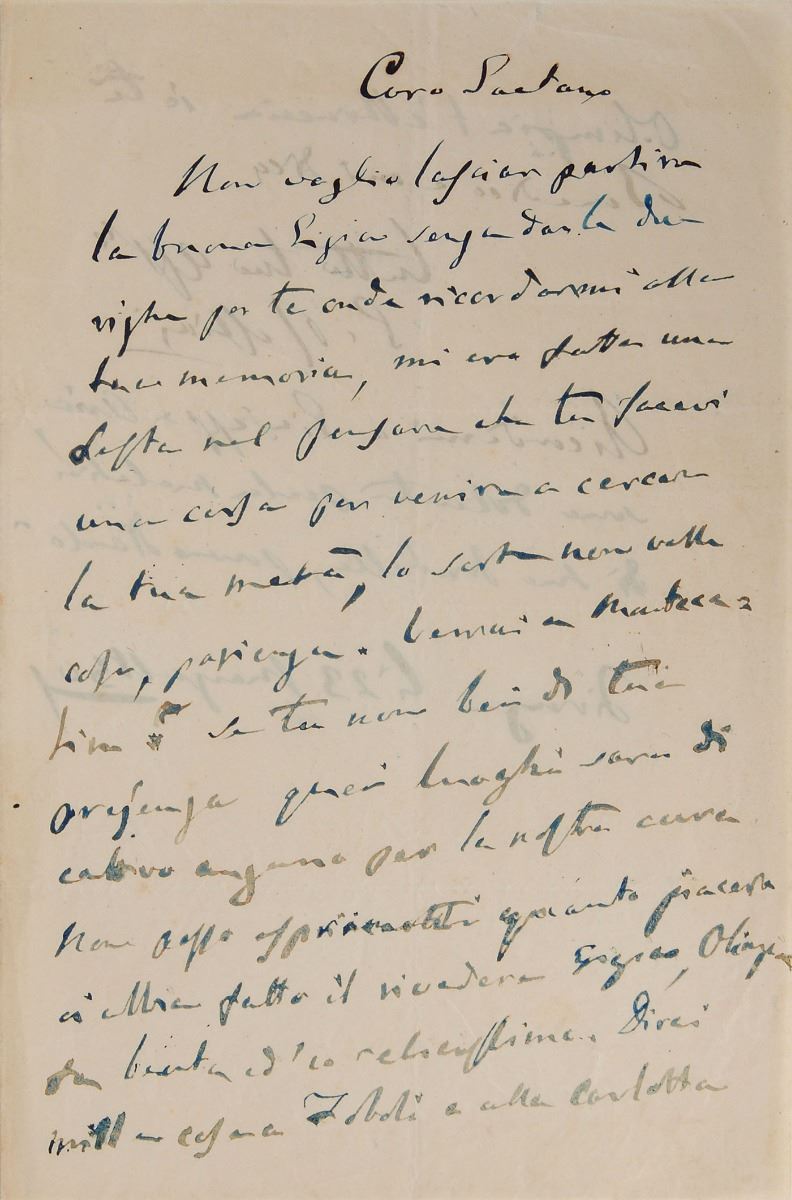 Caro Gaetano
Non voglio lasciar partire
la buona Gigia senza darle due
righe per te onde ricordarmi alla
tua memoria, mi ero fatta una
festa nel pensare che tu facevi
una corsa per venire a cercare
la tua metà, la sorte non volle
così, pazienza. Verrai a Monteca=
tini? se tu non bei di tua
presenza quei luoghi sara di
cativo augurio per la nostra cura
Non posso esprimerti quanto piacere
ci abbia fatto il rivedere Gigia, Olimpia
sta benta ed io
mille cose a Zoboli e alla Carlotta